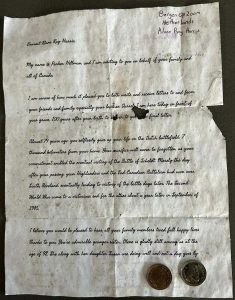 Bergen op Zoom
Netherlands
Dearest Uncle Roy Harris
My name is and I am writing to you on behalf of your family and
all of Canada.
I am aware of how much it pleased you to both write and receive letters to and from
your friends and family especially your brother
grave 100 years after your birth to you letter.
Almost 79 years ago you selflessly gave up your life on the Dutch battlefield. 7
thousand kilometers from your home. Your sacrifice will never be forgotten as your
commitment enabled the eventual victory of the Battle of Scheldt. Merely the day
after your passing your Highlanders and the 2nd Canadian Battalion had won over
South Beveland eventually leading to victory of the battle days later. The Second
World War came to a victorious end for the allies about a year later in September of
1945.
I believe you would be pleased to know all your family members lived full happy lives
thanks to you. You're admirable younger sister. is gladly still among us at the
age of 98. She along with her daughter Susan are doing well and not a day goes by